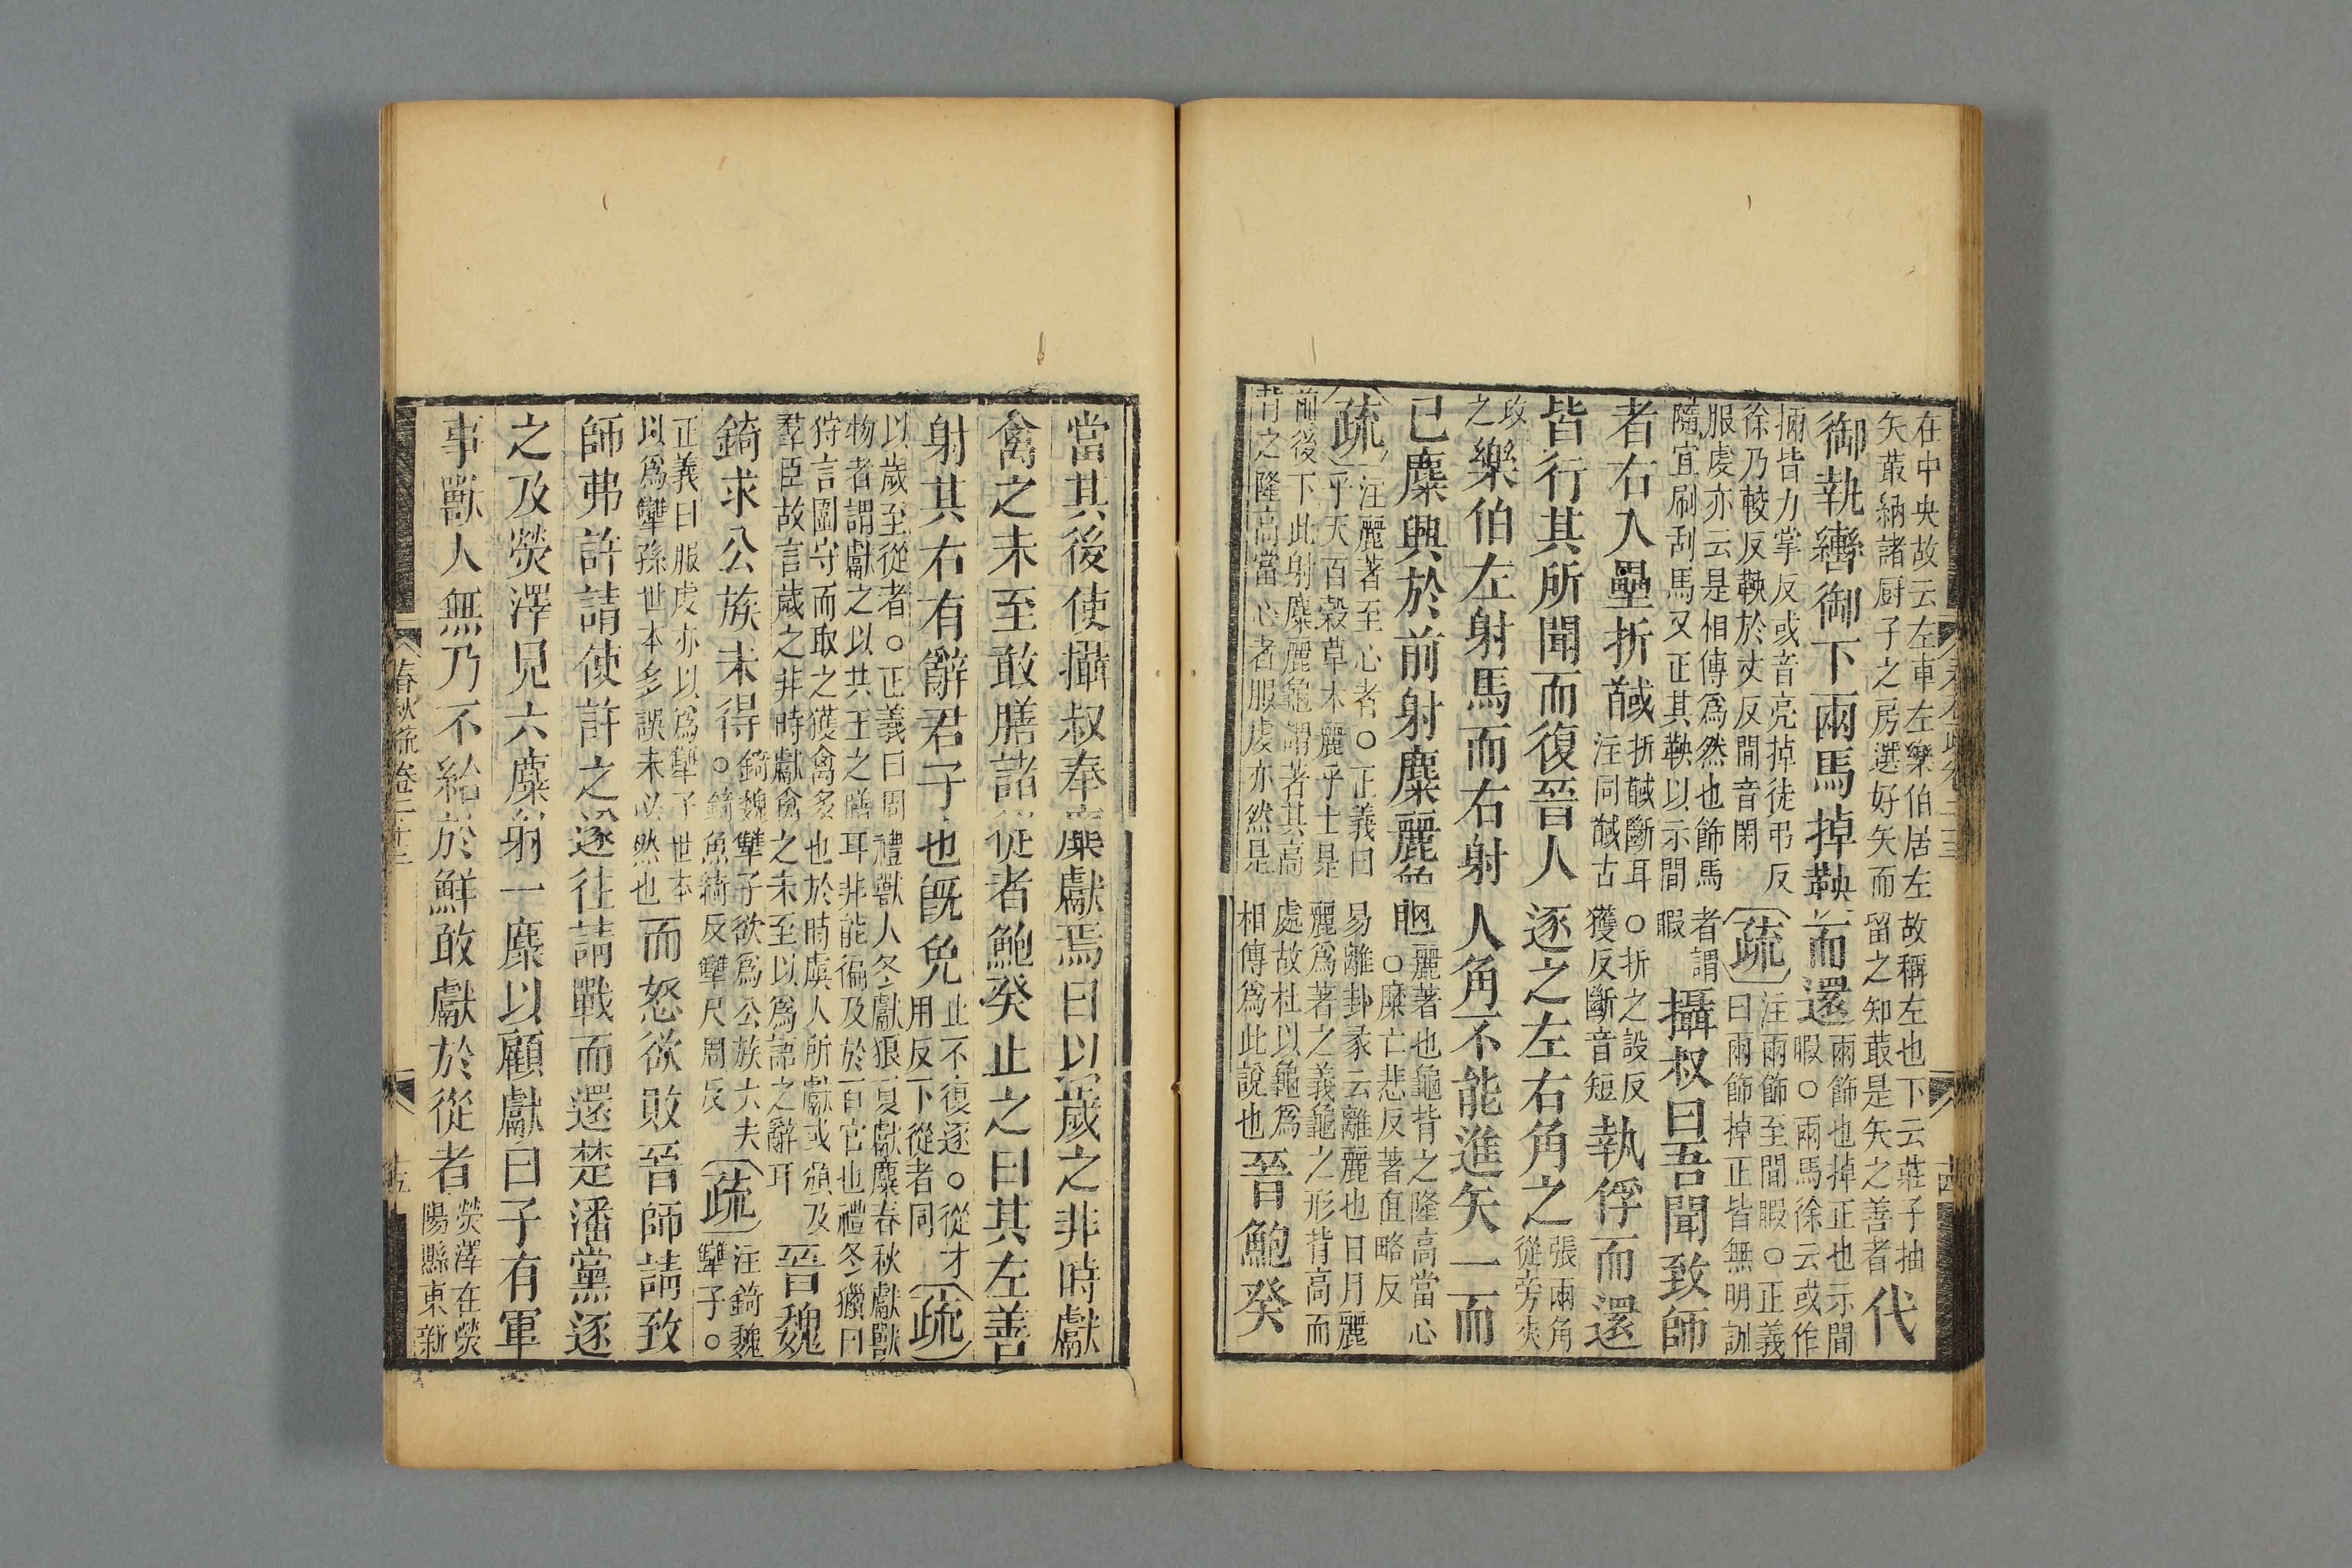 在中央故云左車左樂伯居左故稱左也下云莊子抽
矢菆納諸厨子之房選好矢而留之知菆是矢之善者代
御執轡御下兩馬掉鞅而還兩飾也掉正也示間
暇○兩馬徐云或作
掚皆力掌反或音亮掉徒弔反
徐乃較反鞅於丈反閒音閑疏注兩飾至間暇○正義
曰兩飾掉正皆無明訓
服虔亦云是相傳爲然也飾馬者謂
隨宜刷刮馬又正其鞅以示間暇攝叔曰吾聞致師
者右入壘折馘折馘斷耳○折之設反
注同馘古獲反斷音短執俘而還
皆行其所聞而復晉人逐之左右角之張兩角
從旁夾
攻
之樂伯左射馬而右射人角不能進矢一而
已麋興於前射麋麗龜麗著也龜背之隆高當心
○麋亡悲反著直略反
疏注麗著至心者○正義曰易離卦彖云離麗也日月麗
乎天百榖草木麗乎土是麗爲著之義龜之形背高而
前後下此射麋麗龜謂著其高處故杜以龜爲
背之隆高當心者服虔亦然是相傳爲此說也晉鮑癸
當其後使攝叔奉麋獻焉曰以歲之非時獻
禽之未至敢膳諸從者鮑癸止之曰其左善
射其右有辭君子也旣免止不復逐○從才
用反下從者同疏
以歲至從者○正義曰周禮獸人冬獻狼夏獻麋春秋獻獸
物者謂獻之以共王之膳耳非能徧及於百官也禮冬獵曰
狩言圍守而取之獲禽多也於時虞人所獻或頒及
羣臣故言歲之非時獻禽之未至以爲語之辭耳晉魏
錡求公族未得錡魏犫子欲爲公族大夫
○錡魚綺反犫尺周反疏注錡魏
犫子○
正義曰服虔亦以爲犫子世本
以爲犫孫世本多誤未必然也而怒欲敗晉師請致
師弗許請使許之遂往請戰而還楚潘黨逐
之及熒澤見六麋射一麋以顧獻曰子有軍
事獸人無乃不給於鮮敢獻於從者熒澤在熒
陽縣東新
春秋疏卷二十三